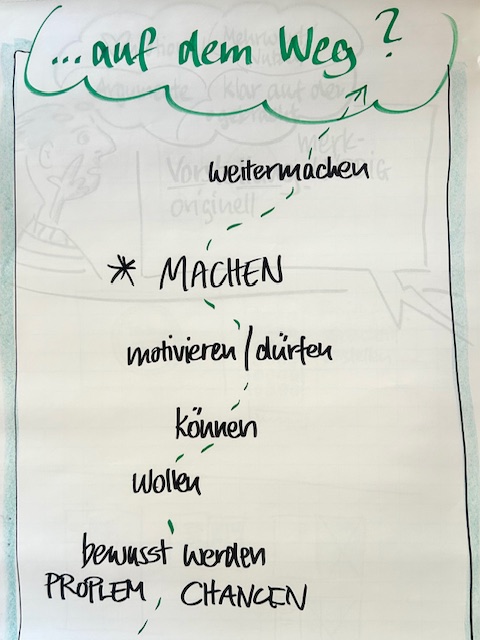 ...auf dem Weg?
weitermachen
* MACHEN
motivieren/dürfen
können
wollen
bewusst werden
PROPLEM CHANCEN